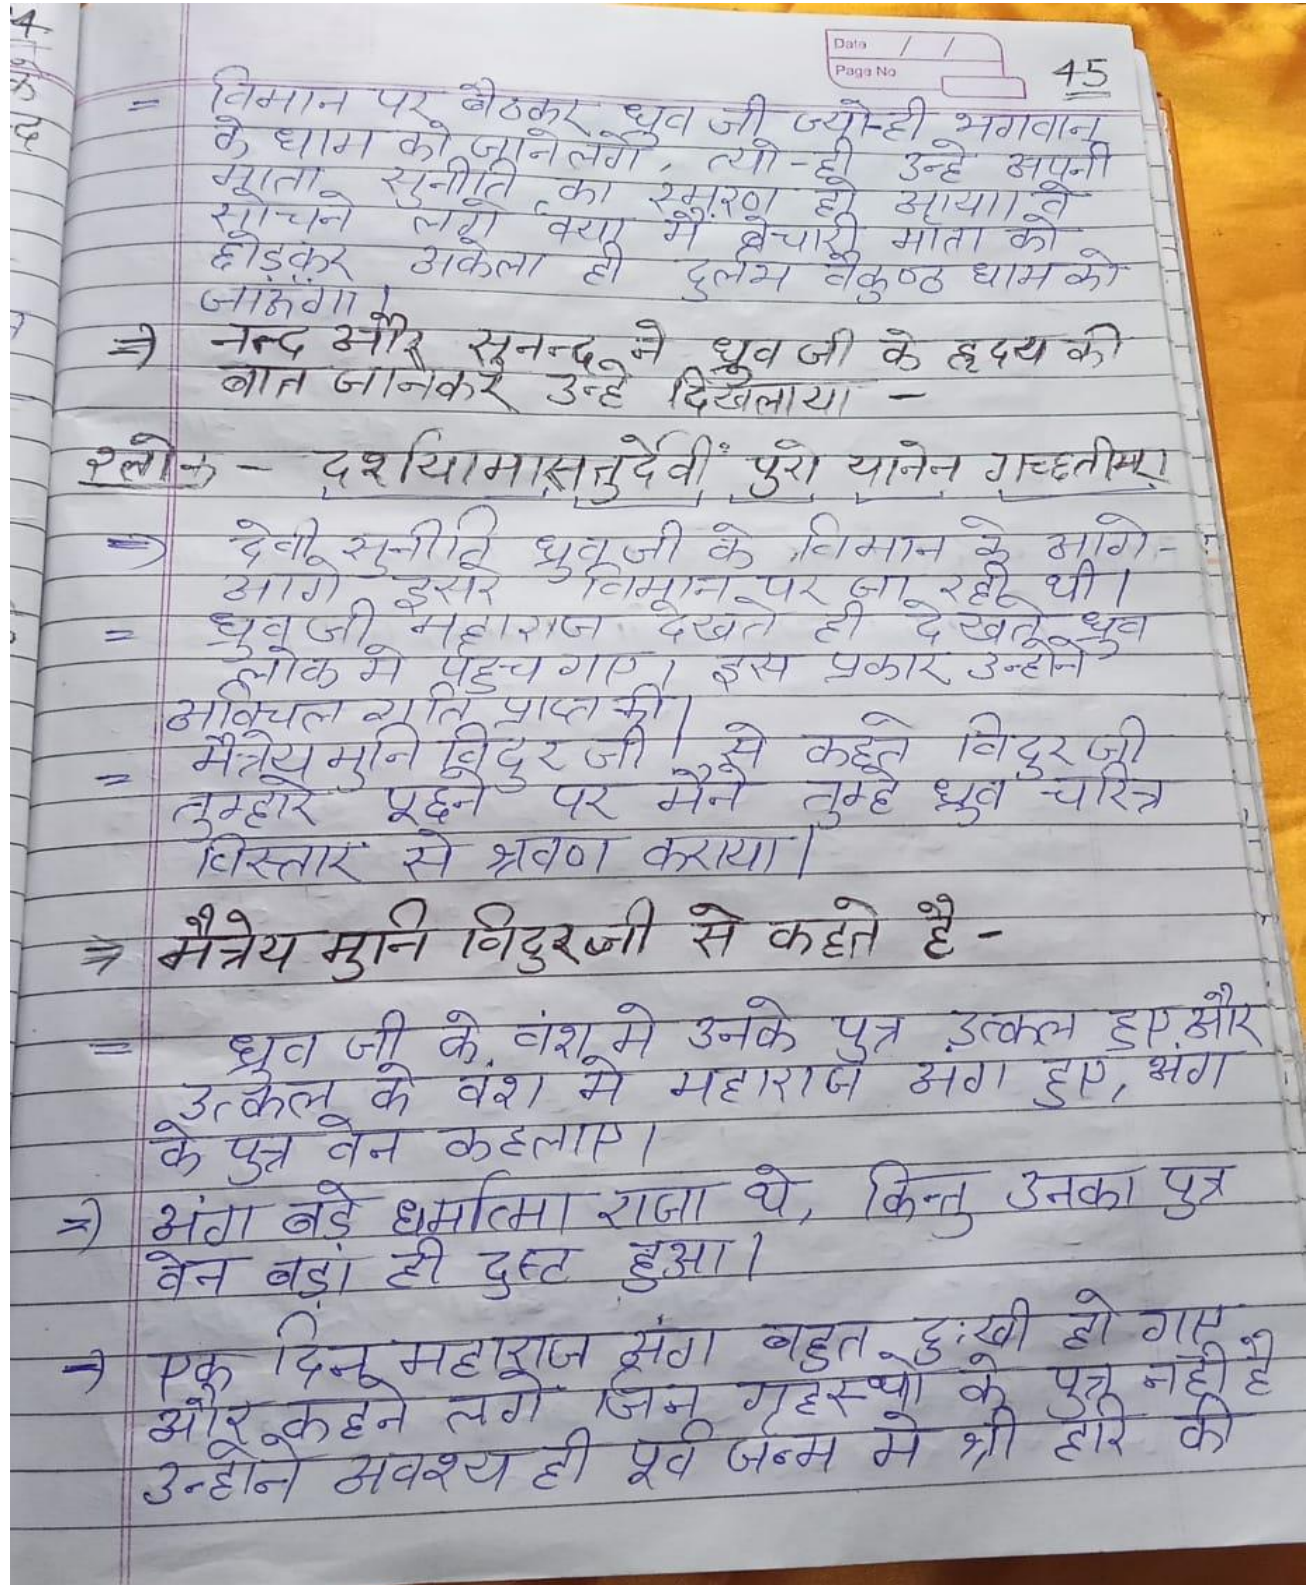 4
के
द
Data / /
Page No
45
= विमान पर बैठकर ध्रुव जी ज्यो-ही भगवान
के धाम को जाने लगे, त्यो-ही उन्हे अपनी
माता सुनीति का स्मरण हो आया। वे
सोचने लगे क्या मैं बेचारी माता को
छोड़कर अकेला ही दुर्लभ वैकुण्ठ धाम को
जाऊंगा।
⇒ नन्द और सुनन्द ने ध्रुव जी के हृदय की
बात जानकर उन्हे दिखलाया -
श्लोक - दर्शयामासतुर्देवीं पुरो यानेन गच्छतीम।
⇒ देवी सुनीति ध्रुव जी के विमान के आगे-
आगे दुसरे विमान पर जा रही थी।
= ध्रुव जी महाराज देखते ही देखते ध्रुव
लोक मे पहुच गए। इस प्रकार उन्होने
अविचल गति प्राप्त की।
= मैत्रेय मुनि विदुर जी से कहते विदुर जी
तुम्हारे पूछने पर मैने तुम्हे ध्रुव चरित्र
विस्तार से श्रवण कराया।
⇒ मैत्रेय मुनि विदुरजी से कहते है -
= ध्रुव जी के वंश मे उनके पुत्र उत्कल हुए और
उत्कल के वंश मे महाराज अंग हुए, अंग
के पुत्र वेन कहलाए।
⇒ अंग बड़े धर्मात्मा राजा थे, किन्तु उनका पुत्र
वेन बड़ा ही दुस्ट हुआ।
→ एक दिन महाराज अंग बहुत दुःखी हो गए
और कहने लगे जिन गृहस्थो के पुत्र नही है
उन्होने अवश्य ही पूर्व जन्म मे श्री हरि की